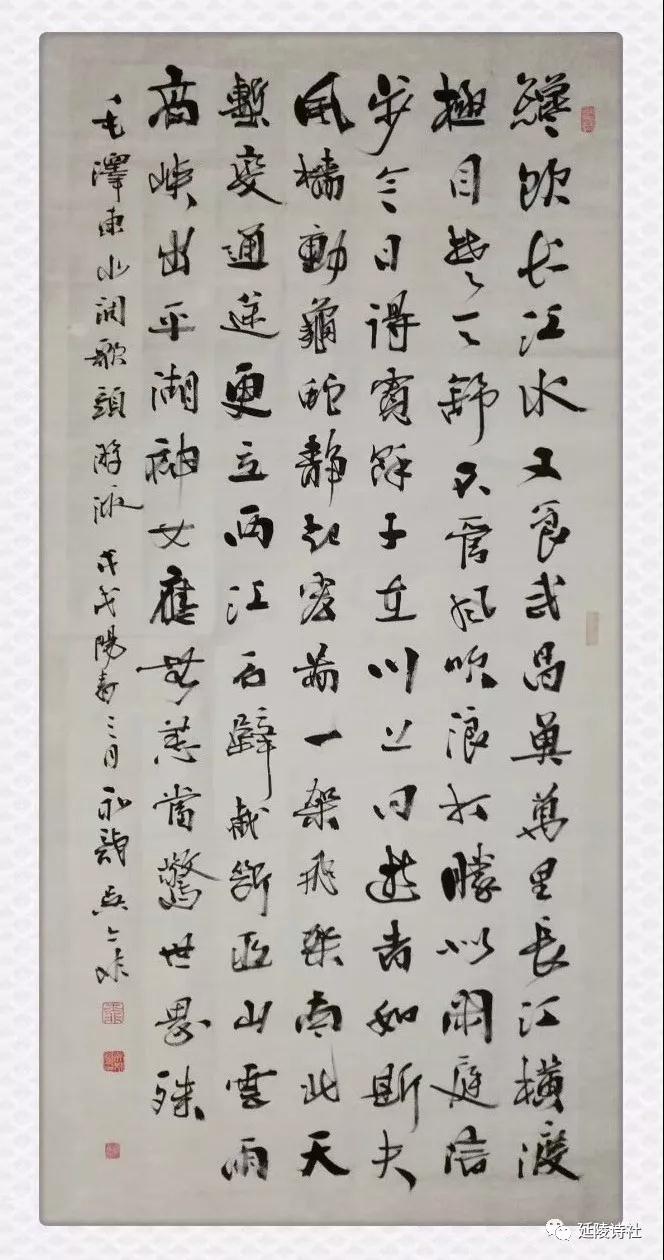 纔飲长江水又食武昌魚萬里長江橫渡
極目楚天舒不管風吹浪打勝似閑庭信
步今日得寬餘子在川上曰逝者如斯夫
風檣動龜蛇靜起宏圖一架飛架南北天
塹變通途更立西江石壁截斷巫山雲雨
高峽出平湖神女應無恙當驚世界殊
毛澤東水調歌頭游泳 戊戌陽春三月
延陵诗社